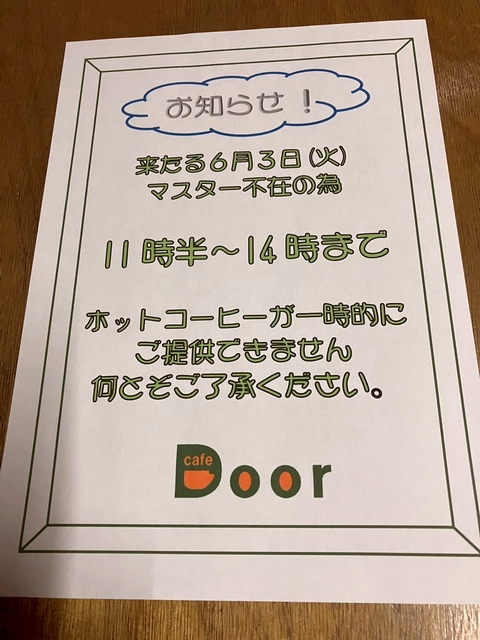 お知らせ！
来たる６月３日(火)
マスター不在の為
11時半～14時まで
ホットコーヒーが一時的に
ご提供できません
何とぞご了承ください。
cafe
Door